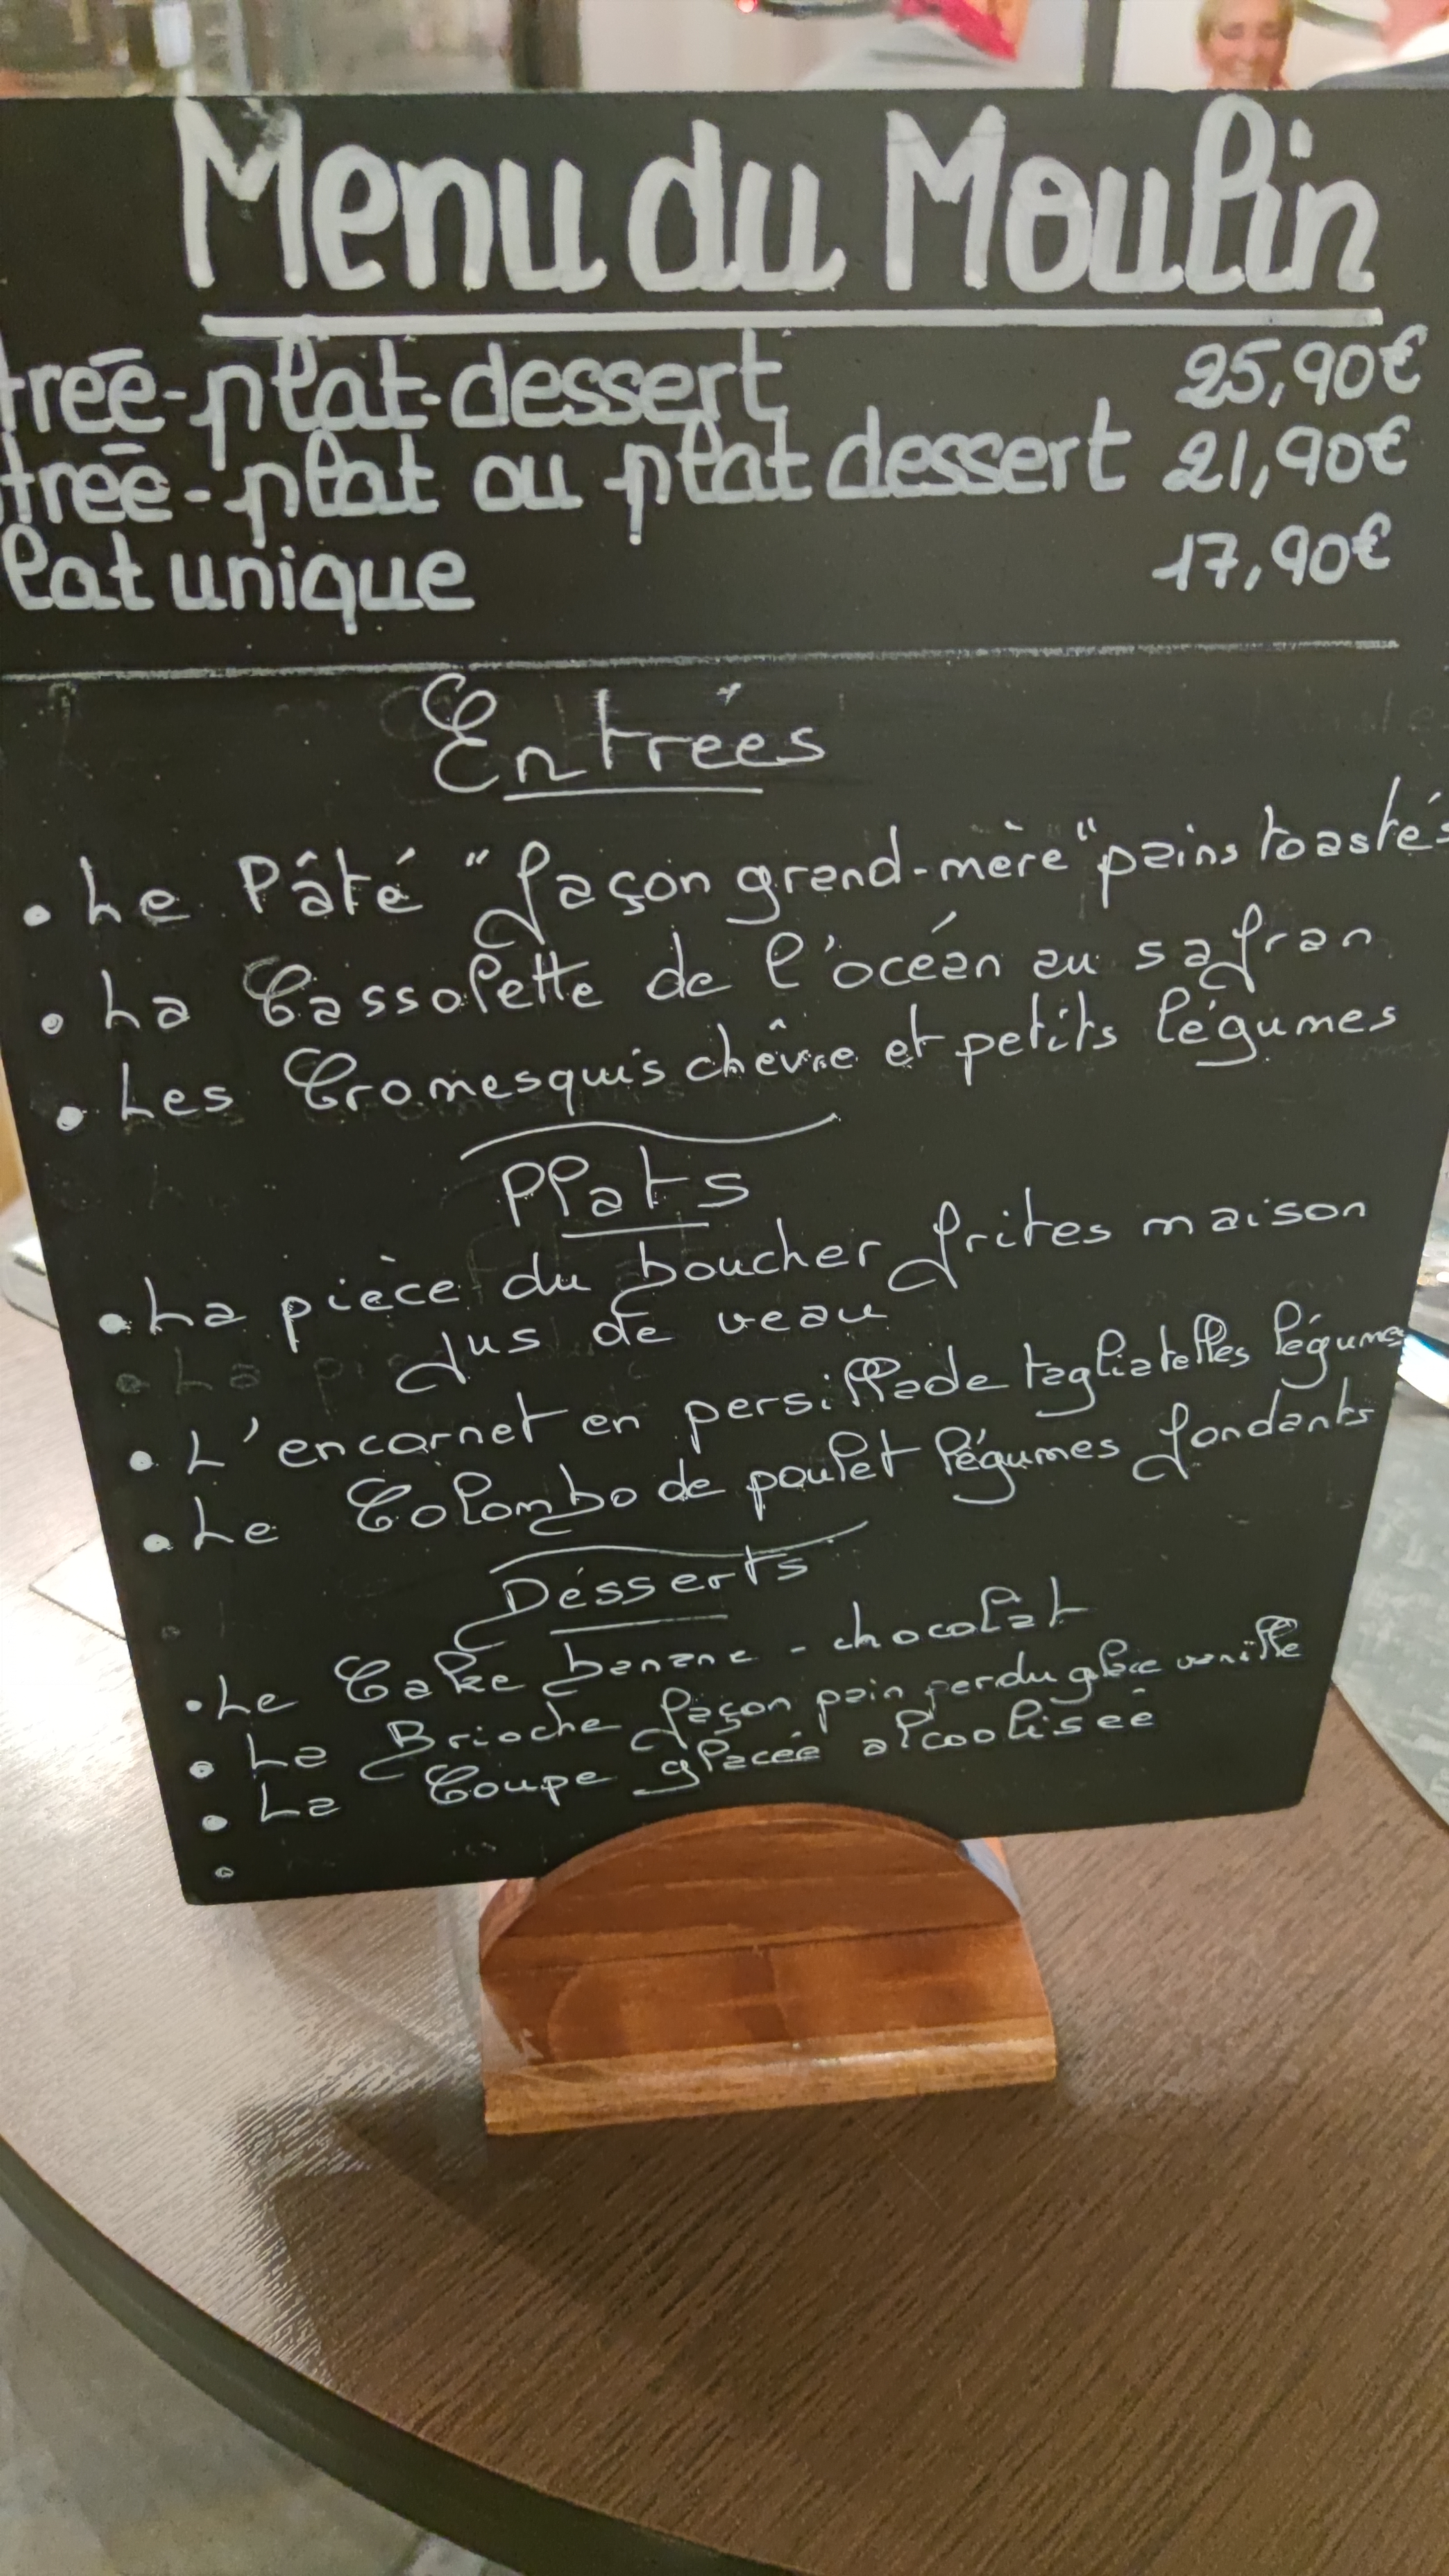 Menu du Moulin
treé-plat-dessert 25,90€
treé-plat ou plat dessert 21,90€
lat unique 17,90€
Entrées
• Le Pâté "façon grand-mère" pains toastés
• La Cassolette de l'océan au safran
• Les Cromesquis chêvre et petits légumes
Plats
• La pièce du boucher frites maison
Jus de veau
• L'encornet en persillade tagliatelles légumes
• Le Colombo de poulet légumes fondants
Désserts
• Le Cake banane - chocolat
• La Brioche façon pain perdu glace vanille
• La Coupe glacée alcoolisée